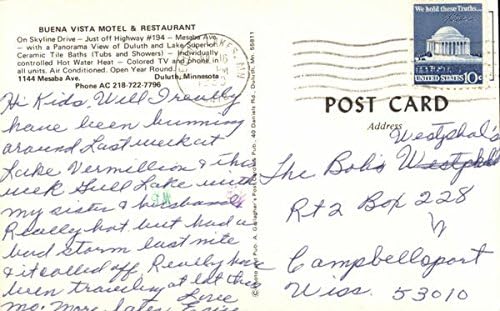 BUENA VISTA MOTEL & RESTAURANT
On Skyline Drive – Just off Highway #194 – Mesaba Ave.
– with a Panorama View of Duluth and Lake Superior
Ceramic Tile Baths (Tubs and Showers) – Individually
controlled Hot Water Heat – Colored TV and phone in
all units. Air Conditioned. Open Year Round.
1144 Mesaba Ave. Duluth, Minnesota
Phone AC 218-722-7796
Hi Kids, Well I really
have been running
around Last week at
Lake Vermillion & this
week Gull Lake with
my sister & husband
Really hot but had a
bad storm last nite
& it cooled off. Really have
been traveling a lot this
mo. More later Love
We hold these Truths...
UNITED STATES 10c
POST CARD
Address
Westphals
The Bob's
Rt 2 Box 228
Campbellsport
Wisc. 53010